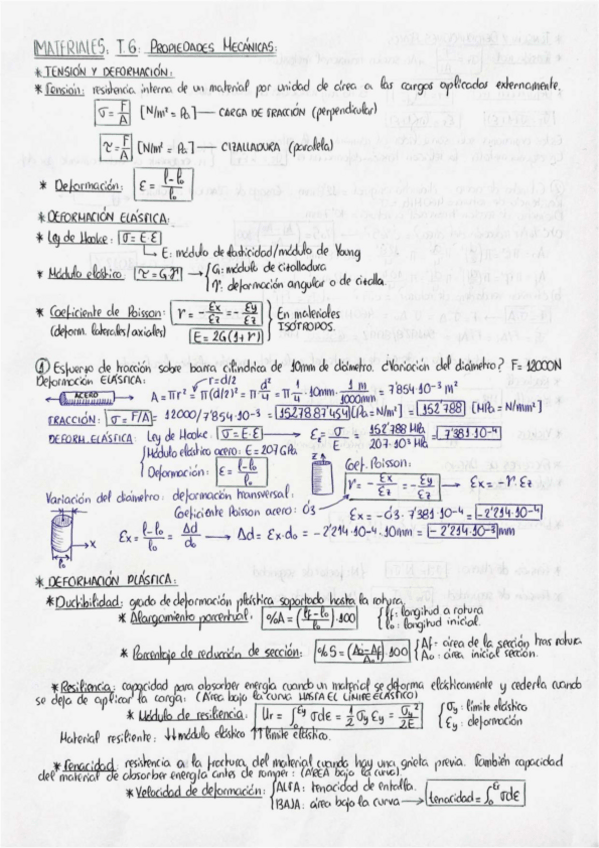 MATERIALES. T.6: PROPIEDADES MECÁNICAS:
* TENSIÓN Y DEFORMACIÓN:
* Tensión: resistencia interna de un material por unidad de área a las cargas aplicadas externamente.
σ = F/A [N/m² = Pa] — CARGA DE TRACCIÓN (perpendicular)
τ = F/A [N/m² = Pa] — CIZALLADURA (paralela)
* Deformación: ε = l-l₀/l₀
* DEFORMACIÓN ELÁSTICA:
* Ley de Hooke: σ = E·ε
→ E: módulo de elasticidad/módulo de Young
* Módulo elástico: τ = G·γ → { G: módulo de cizalladura
γ: deformación angular o de cizalla.
* Coeficiente de Poisson: ν = - εx/εz = - εy/εz } En materiales
(deform. laterales/axiales) E = 2G(1+ν) ISÓTROPOS.
① Esfuerzo de tracción sobre barra cilíndrica de 10mm de diámetro. ¿Variación del diámetro? F = 12000N
Deformación ELÁSTICA: r=d/2
ACERO A = πr² = π(d/2)² = π d²/4 = π 1/4 · 10mm · 1m/1000mm = 7'854·10⁻³ m²
TRACCIÓN: σ = F/A = 12000/7'854·10⁻³ = 152787'454 [Pa = N/m²] = 152'788 [MPa = N/mm²]
DEFORM. ELÁSTICA: Ley de Hooke: σ = E·ε → εz = σ/E = 152'788 MPa/207·10³ MPa = 7'381·10⁻⁴
Módulo elástico acero: E = 207 GPa
Deformación: ε = l-l₀/l₀
z
Coef. Poisson:
ν = - εx/εz = - εy/εz → εx = -ν·εz
Variación del diámetro: deformación transversal:
Coeficiente Poisson acero: 0'3 — εx = -0'3·7'381·10⁻⁴ = -2'214·10⁻⁴
εx = l-l₀/l₀ = Δd/d₀ → Δd = εx·d₀ = -2'214·10⁻⁴·10mm = -2'214·10⁻³ mm
x
l₀
* DEFORMACIÓN PLÁSTICA:
* Ductibilidad: grado de deformación plástica soportado hasta la rotura.
* Alargamiento porcentual: %A = (lf-l₀/l₀)·100 { lf: longitud a rotura
l₀: longitud inicial.
* Porcentaje de reducción de sección: %S = (A₀-Af/A₀)·100 { Af = área de la sección tras rotura
A₀: área inicial sección.
* Resiliencia: capacidad para absorber energía cuando un material se deforma elásticamente y cederla cuando
se deja de aplicar la carga: (Área bajo la curva HASTA EL LÍMITE ELÁSTICO)
* Módulo de resiliencia: Ur = ∫₀^εy σdε = 1/2 σy εy = σy²/2E { σy: límite elástico
εy: deformación
Material resiliente: ↓↓ módulo elástico ↑↑ límite elástico.
* Tenacidad: resistencia a la fractura del material cuando hay una grieta previa. También capacidad
del material de absorber energía antes de romper: (ÁREA bajo la curva).
* Velocidad de deformación: { ALTA: tenacidad de entalla.
BAJA: área bajo la curva → tenacidad = ∫₀^εf σdε